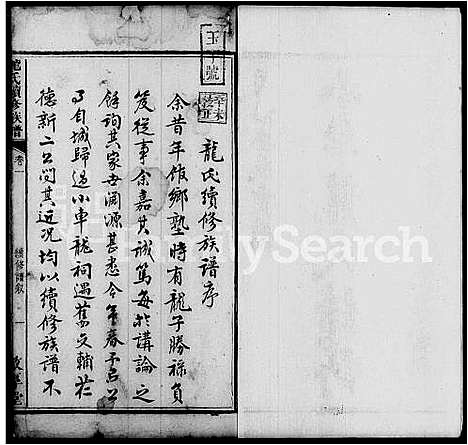 龍氏續修族譜序
余昔年館鄉塾時有龍子勝祿負
笈從事余嘉其誠篤每於講論之
餘詢其家世淵源甚悉今年春予以公
事自城歸過小車龍祠遇舊交輔廷
德新二公問其近况均以續修族譜不
龍氏續修族譜
卷一
續修譜敘
一
敦厚堂
FamilySearch